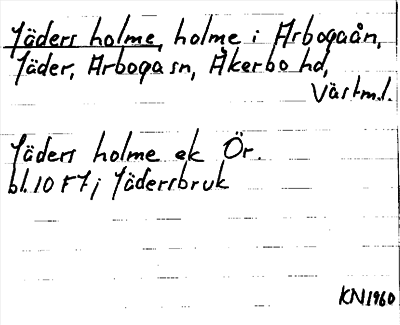 Jäders holme, holme i Arbogaån,
Jäder, Arboga sn, Åkerbo hd,
Västm.l.
Jäders holme ek Ör.
bl. 10 F7j Jädersbruk
KN1960